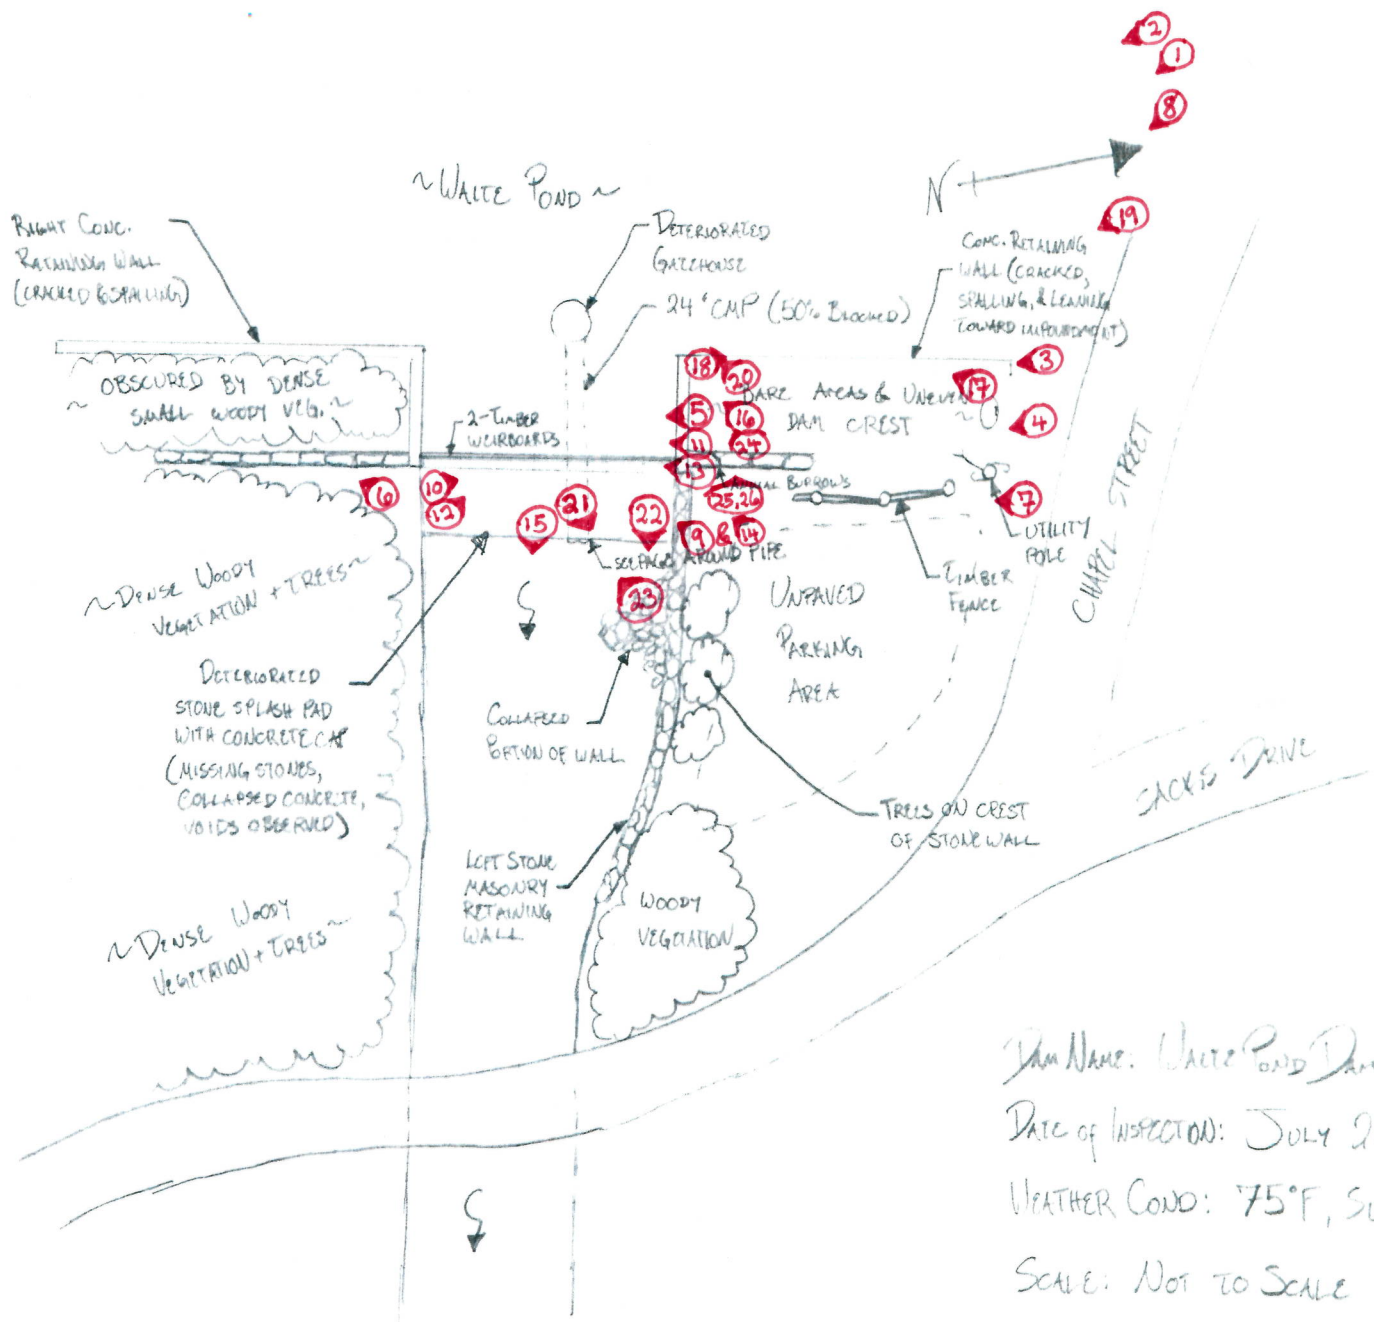 2
1
8
~ WAITE POND ~
N
19
RIGHT CONC.
RETAINING WALL
(CRACKED & SPALLING)
DETERIORATED
GATEHOUSE
24" CMP (50% BLOCKED)
CONC. RETAINING
WALL (CRACKED,
SPALLING, & LEANING
TOWARD IMPOUNDMENT)
18
20
3
17
~ OBSCURED BY DENSE
SMALL WOODY VEG. ~
BARE AREAS & UNEVEN
DAM CREST
5
16
4
2-TIMBER
WEIRBOARDS
11
24
13
ANIMAL BURROWS
6
10
12
25,26
7
15
21
22
9 & 14
UTILITY
POLE
SEEPAGE AROUND PIPE
TIMBER
FENCE
CHAPEL STREET
~ DENSE WOODY
VEGETATION + TREES ~
23
UNPAVED
PARKING
AREA
DETERIORATED
STONE SPLASH PAD
WITH CONCRETE CAP
(MISSING STONES,
COLLAPSED CONCRETE,
VOIDS OBSERVED)
COLLAPSED
PORTION OF WALL
TREES ON CREST
OF STONE WALL
DRIVE
LEFT STONE
MASONRY
RETAINING
WALL
WOODY
VEGETATION
~ DENSE WOODY
VEGETATION + TREES ~
DAM NAME: WAITE POND DAM
DATE OF INSPECTION: JULY 2
WEATHER COND: 75°F,
SCALE: NOT TO SCALE